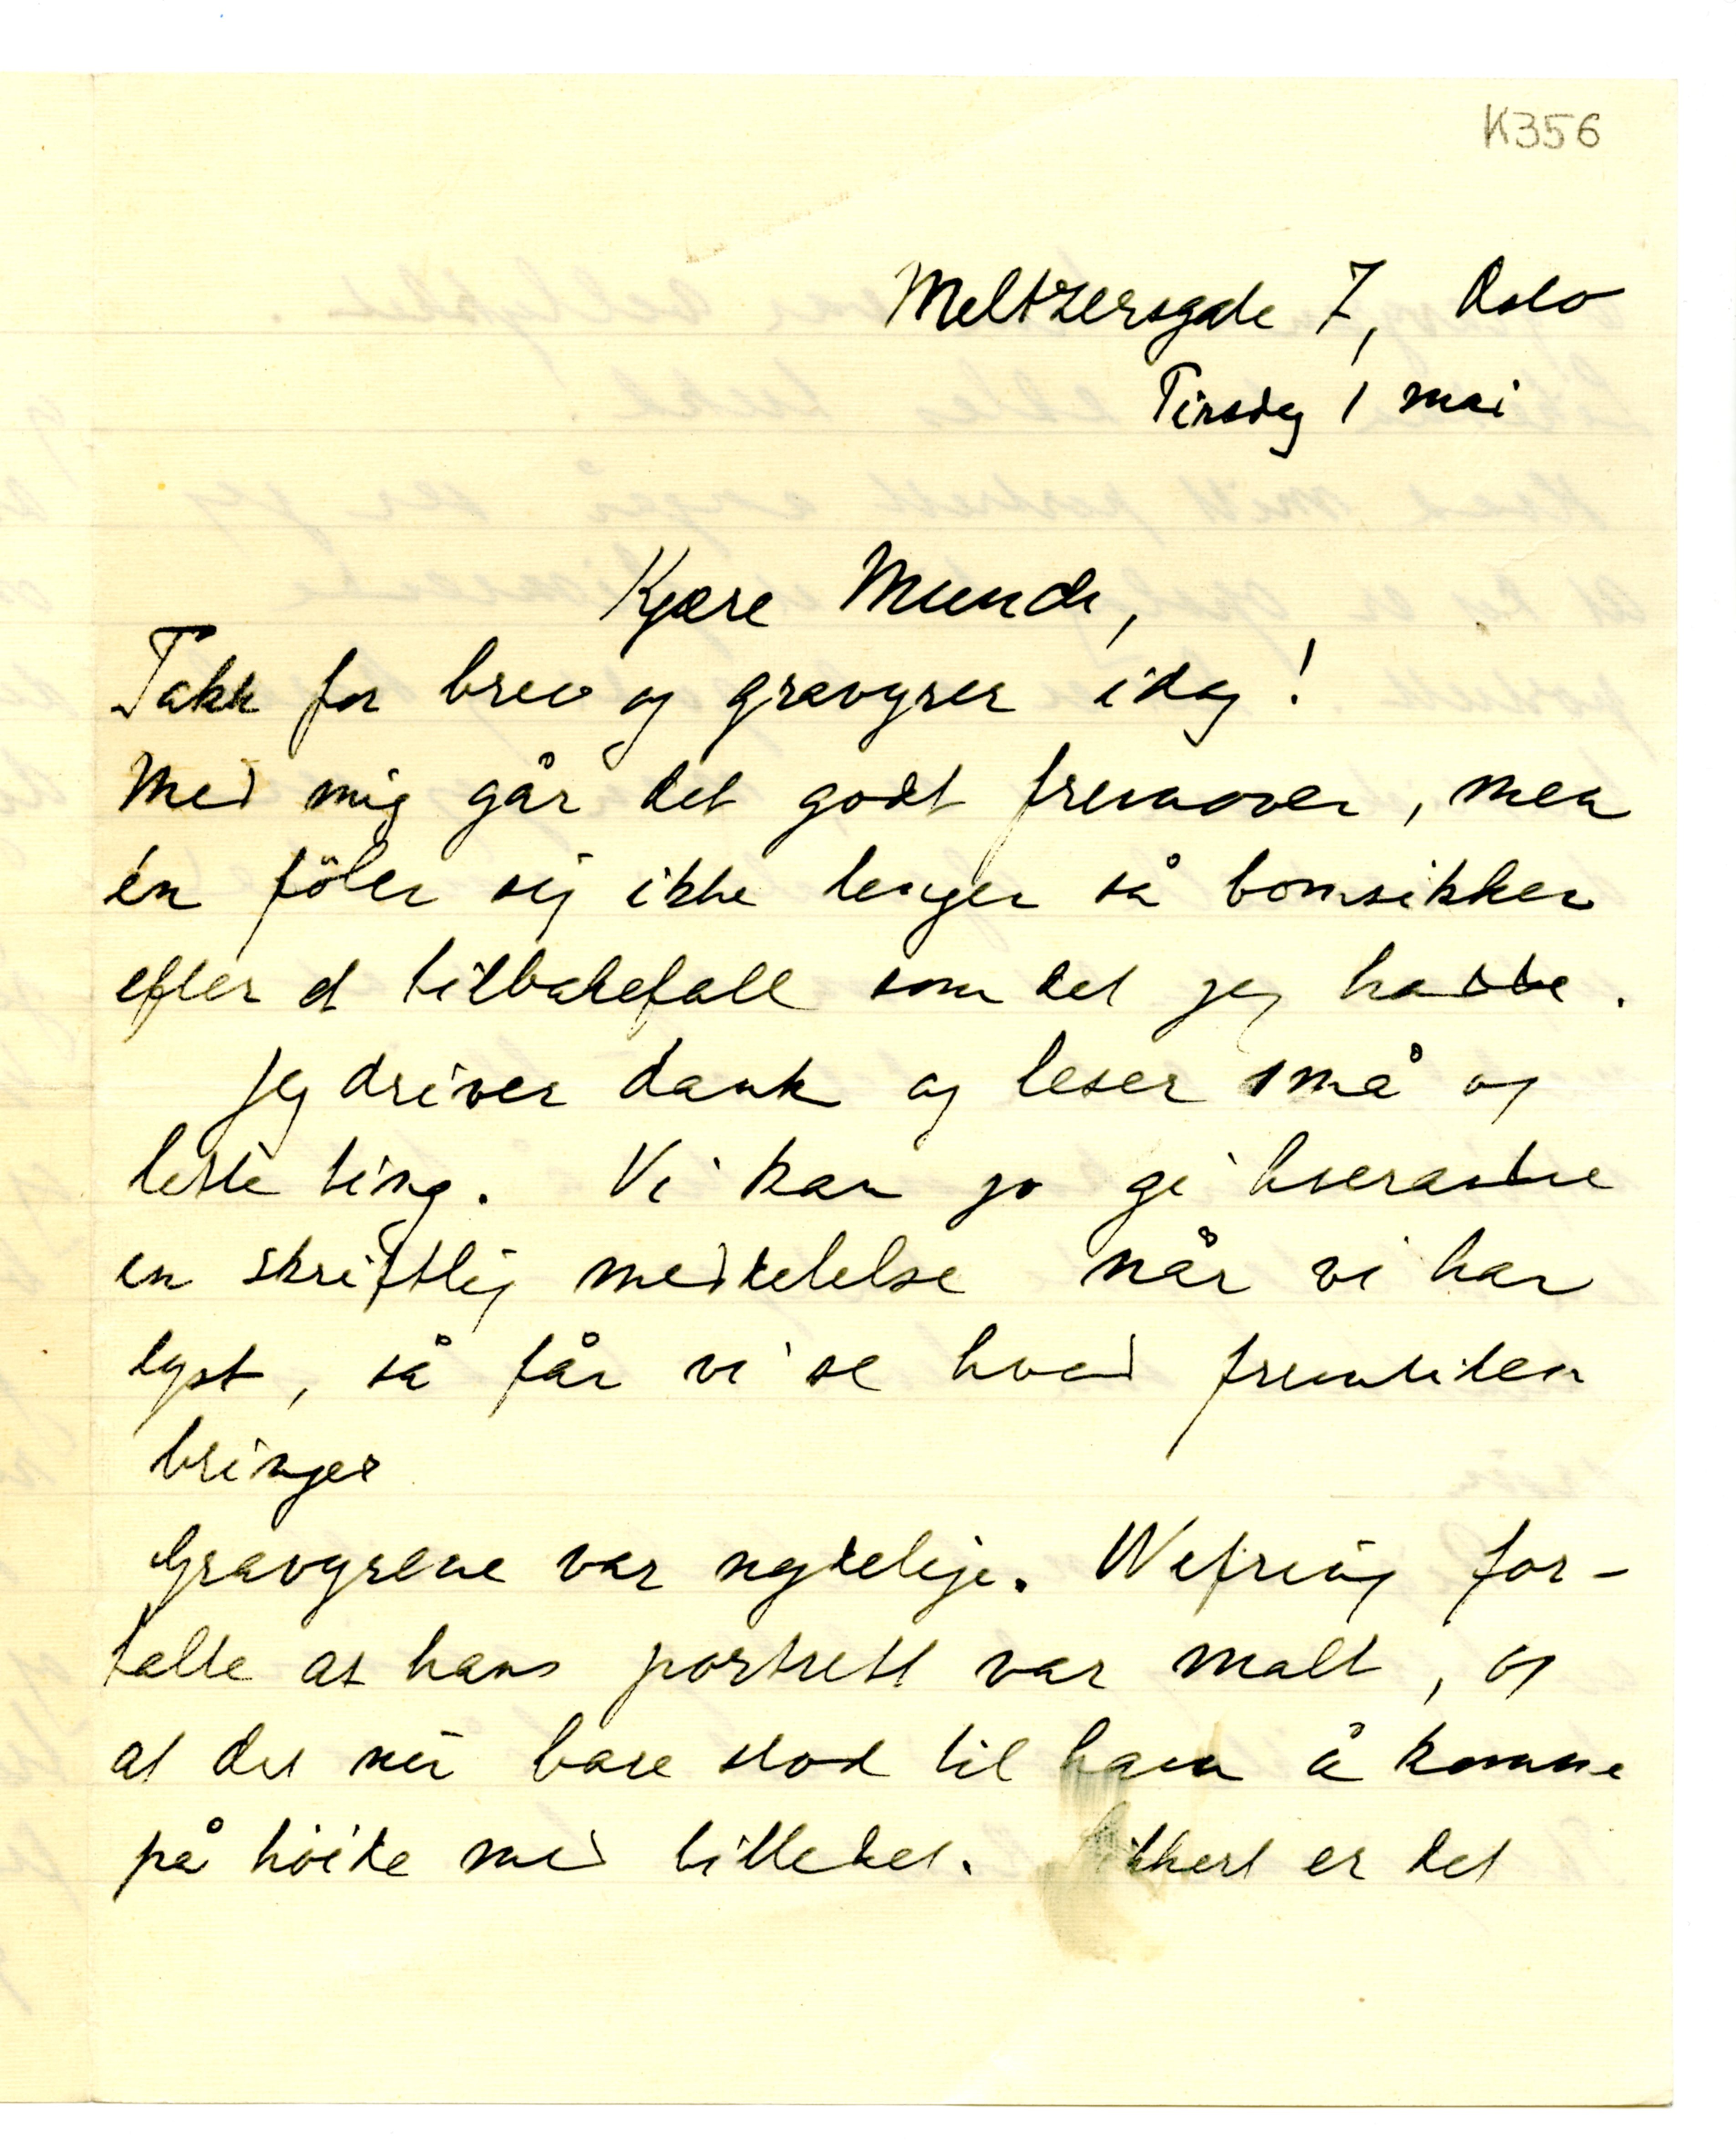 K356
Meltzersgade 7, Oslo
Tirsdag 1 mai
Kjære Munch,
Takk for brev og gravyrer idag!
Med mig går det godt fremover, men
én föler sig ikke lenger så bomsikker
efter et tilbakefall som det jeg hadde.
Jeg driver dank og leser små og
lette ting. Vi kan jo gi hverandre
en skriftlig meddelelse når vi har
lyst, så får vi se hvad fremtiden
bringer
Gravyrene var nydelige. Wefring for-
talte at hans portrett var malt, og
at det nu bare stod til ham å komme
på höide med billedet. Sikkert er det